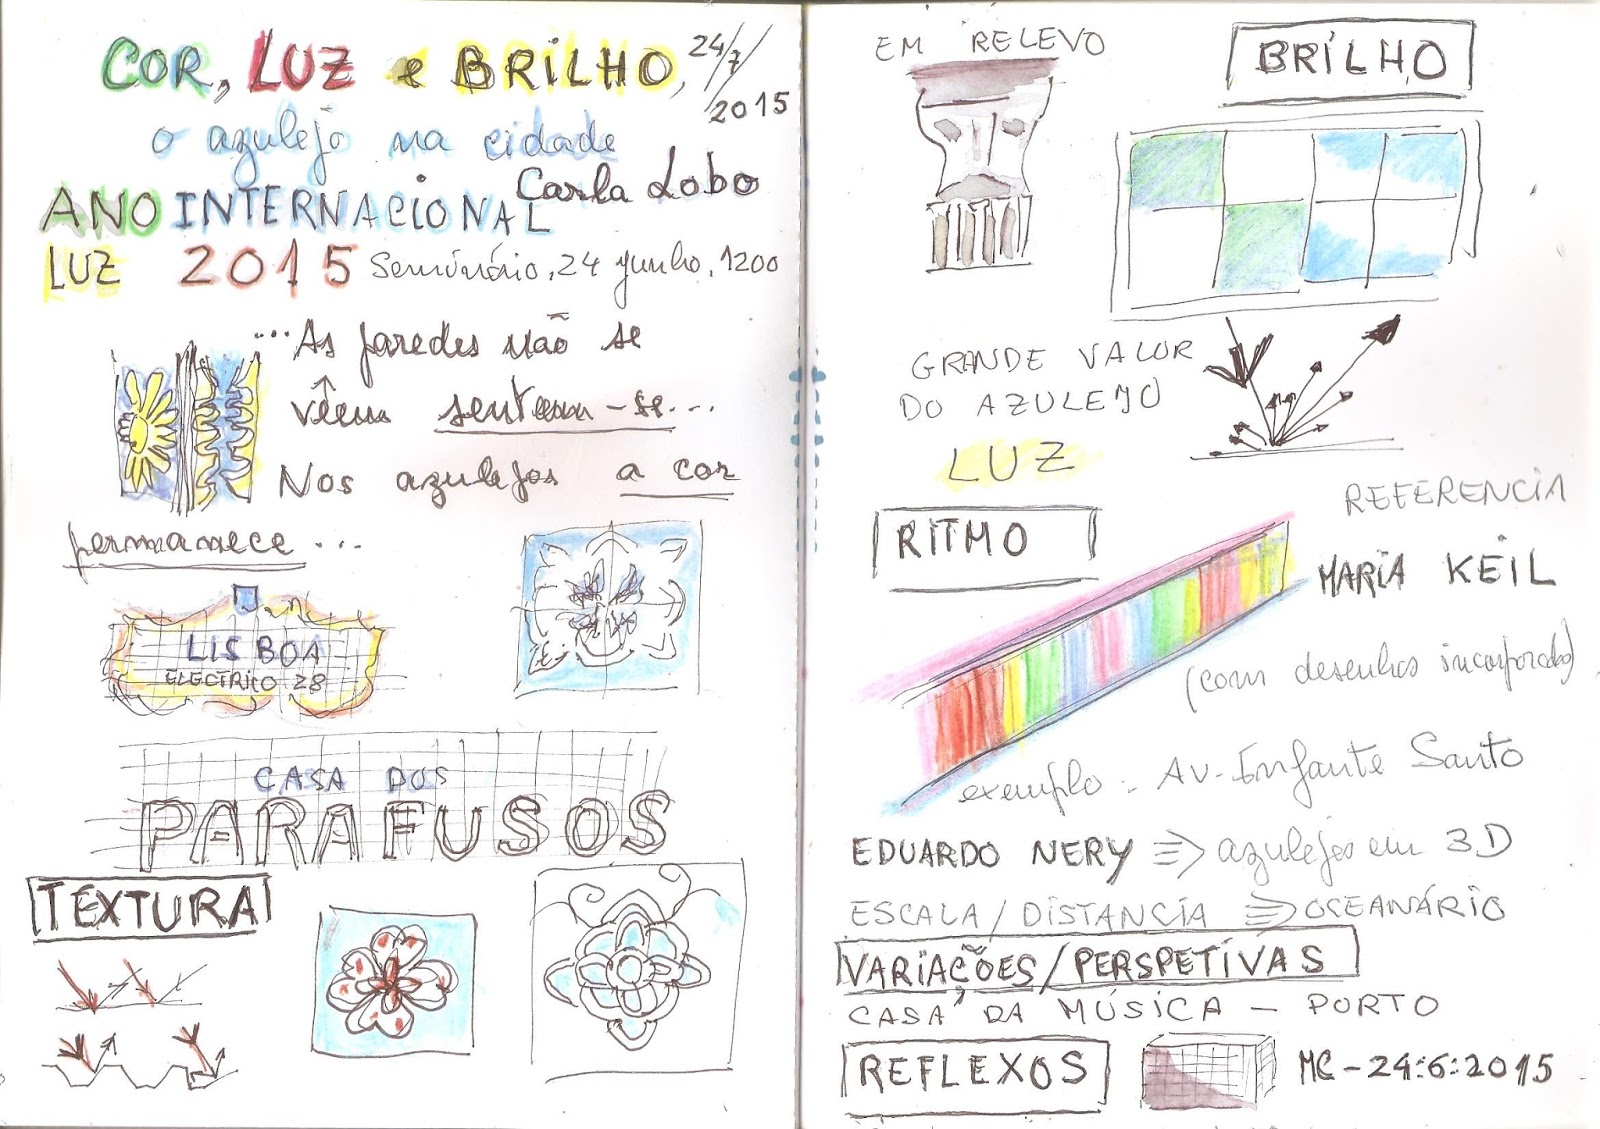 COR, LUZ e BRILHO, 24/7/2015
o azulejo na cidade
Carla Lobo
ANO INTERNACIONAL
LUZ 2015 Seminário, 24 junho, 1200
... As paredes não se
vêem sentem-se...
Nos azulejos a cor
permanece ...
LISBOA
ELECTRICO 28
CASA DOS
PARAFUSOS
TEXTURA
EM RELEVO
BRILHO
GRANDE VALOR
DO AZULEJO
LUZ
RITMO
REFERENCIA
MARIA KEIL
(com desenhos incorporados)
exemplo: Av. Infante Santo
EDUARDO NERY => azulejos em 3D
ESCALA/DISTANCIA => OCEANÁRIO
VARIAÇÕES/PERSPETIVAS
CASA DA MÚSICA - PORTO
REFLEXOS
MC-24:6:2015